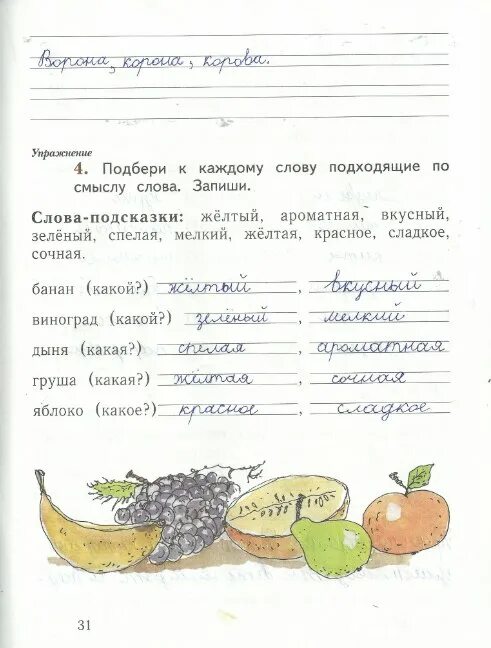 Ворона, корона, корова.
Упражнение
4. Подбери к каждому слову подходящие по
смыслу слова. Запиши.
Слова-подсказки: жёлтый, ароматная, вкусный,
зелёный, спелая, мелкий, жёлтая, красное, сладкое,
сочная.
банан (какой?) жёлтый, вкусный
виноград (какой?) зелёный, мелкий
дыня (какая?) спелая, ароматная
груша (какая?) жёлтая, сочная
яблоко (какое?) красное, сладкое
31